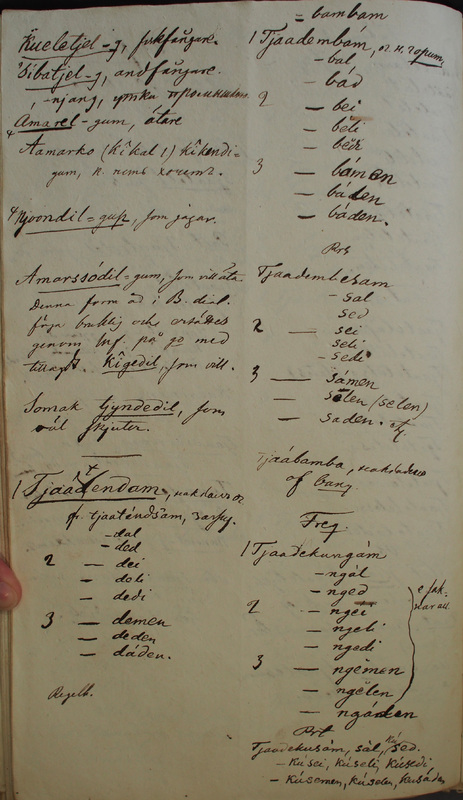 Kueletjel-g, fiskfångare.
Sibatjel-g, andfångare.
, -njang, утки
4 Amarel-gum, ätare
Aamarko (kîkal 1) kîkendi-
gum, н. немъ хочетъ.
4 Njoondil-gup, som jagar.
Amorssódil-gum, som vill äta.
Denna form äd i B. dial.
föga bruklig och ersättes
genom Inf. på go med
tillagdt. Kîgedil, som vill.
Somak tjyndedil, som
väl skjuter.
1 Tjaadendam,
fr. tjaaténdsam,
-dal
-ded
2 — dei
— doli
— dedi
3 — demen
— deden
— dáden.
Regelb.
= bambam
1 Tjaadembám, ог. н. горит,
-bal
— bád
2 — bei
— béli
— bedi
3 — bámen
— báden
— báden.
Prt
Tjaadembesam
-sal
sed
2 — sei
seli
-sedi
3 — sámen
— selen (selen)
— saden. etc.
Tjaábamba,
of bang.
Freq.
1 Tjaadekungám
-ngál
-nged
2 — ngei
— ngeli
— ngedi
3 — ngémen
— ngélen
— ngáden
Prt
Tjaadekusám, sál, sed.
- kúsei, kúseli, kúsedi
- kúsemen, kúselen, kusáden